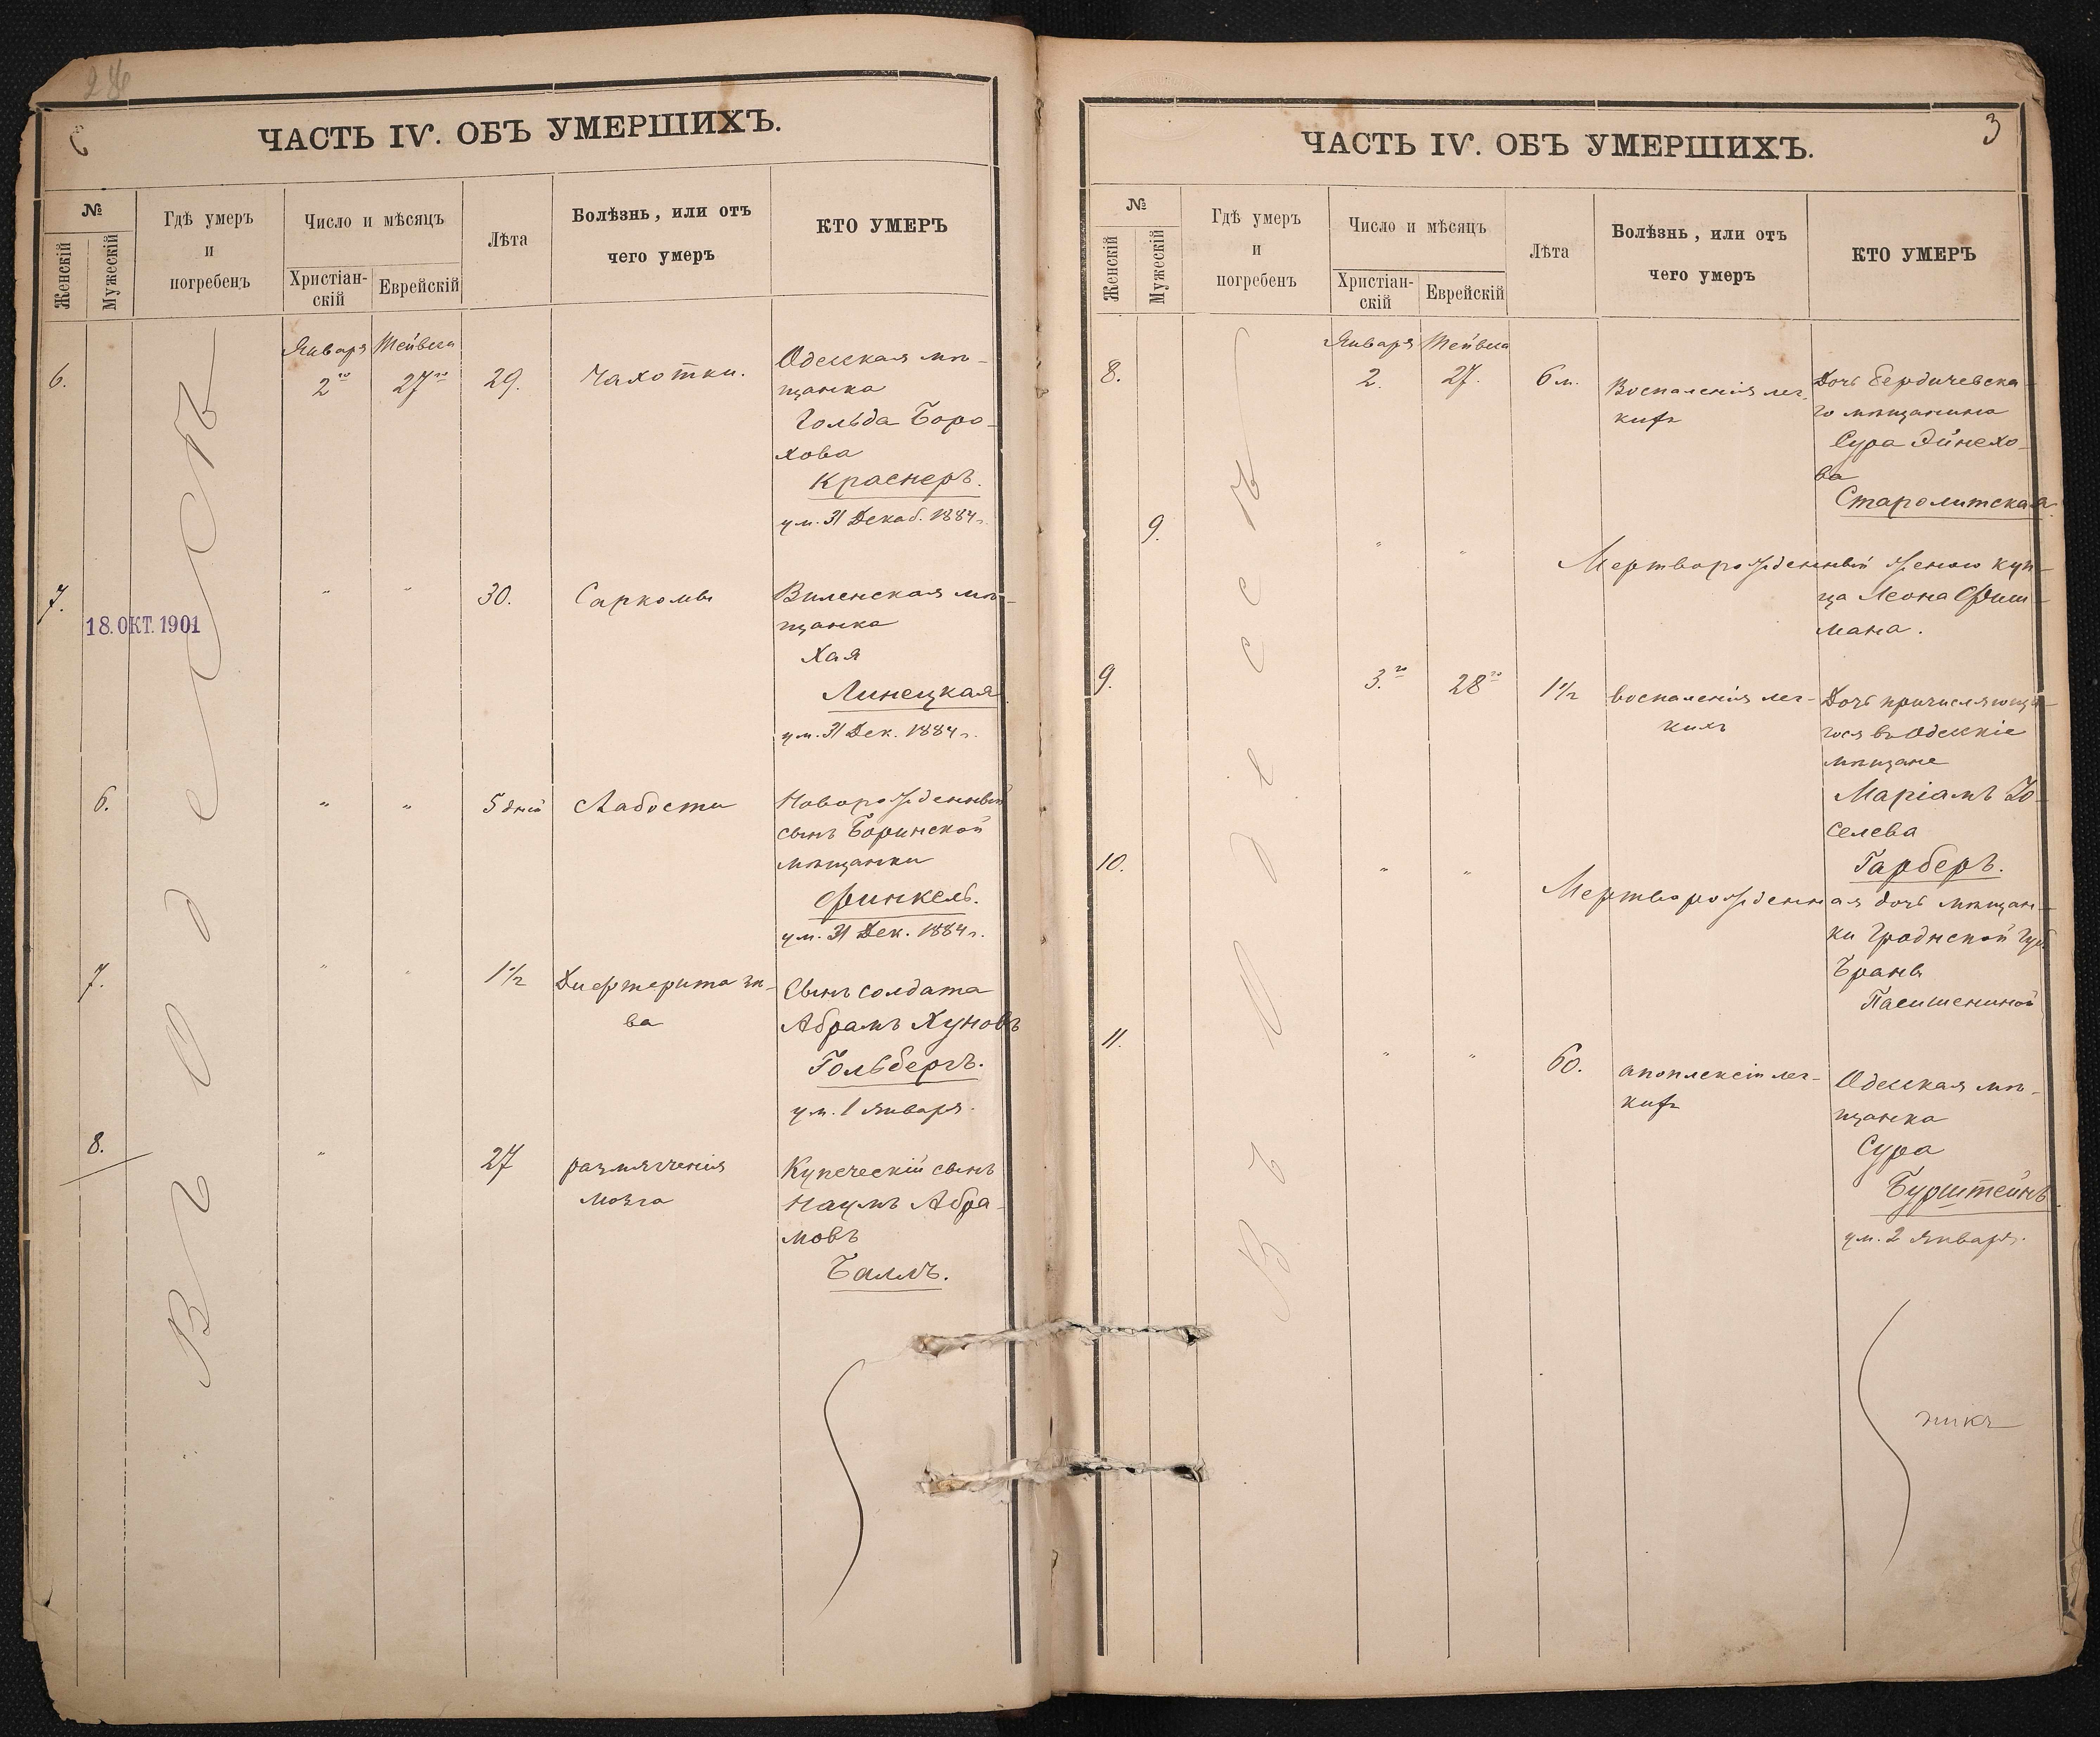 ЧАСТЬ IV. ОБЪ УМЕРШИХЪ.
№
Женскій
Мужескій
Гдѣ умеръ
и
погребенъ
Число и мѣсяцъ
Христіан-
скій
Еврейскій
Лѣта
Болѣзнь, или отъ
чего умеръ
КТО УМЕРЪ
Въ Одессѣ
Января Тейвеса
6. 2го 27го 29. Чахотки. Одесская мѣ-
щанка
Гольда Боро-
хова
Краснеръ.
ум. 31 Декаб. 1884 г.
7. " " 30. Саркомы Виленская мѣ-
щанка
18. ОКТ. 1901
Хая
Линецкая
ум. 31 Дек. 1884 г.
6. " " 5 дней Слабости Новорожденный
сынъ
мѣщанки
Финкель.
ум. 31 Дек. 1884 г.
7. " " 1 1/2 Дифтерита зѣ-
ва
Сынъ солдата
Абрамъ Хуновъ
Гольбергъ.
ум. 1 Января.
8. " 27 размягченія
мозга
Купеческій сынъ
Наумъ Абра-
мовъ
Баллъ.
ЧАСТЬ IV. ОБЪ УМЕРШИХЪ.
3
№
Женскій
Мужескій
Гдѣ умеръ
и
погребенъ
Число и мѣсяцъ
Христіан-
скій
Еврейскій
Лѣта
Болѣзнь, или отъ
чего умеръ
КТО УМЕРЪ
Въ Одессѣ
Января Тейвеса
8. 2. 27. 6 м. Воспаленія лег-
кихъ
Дочь Бердичевска-
го мѣщанина
Сура Эйнехо-
ва
Старолитская
9. " " Мертворожденный женою куп-
ца Леона Фиш-
мана.
9. 3.го 28го 1 1/2 воспаленія лег-
кихъ
Дочь причисляюща-
гося въ Одесскіе
мѣщане
Маріамъ Іо-
селева
Гарберъ.
10. " " Мертворожденная дочь мѣщан-
ки Гродненской губ.
Браны
11. " " 60. апоплексіи лег-
кихъ
Одесская мѣ-
щанка
Сура
Бурштейнъ
ум. 2 Января.